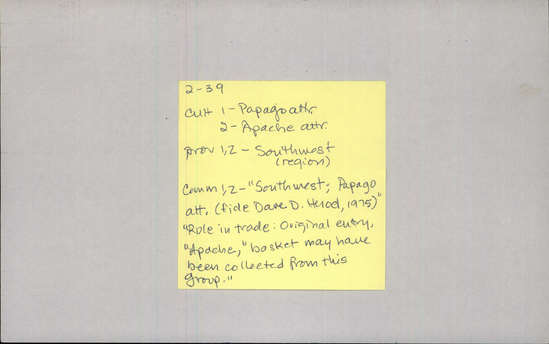 2-39
Cult 1 - Papago attr.
2 - Apache attr.
prov 1,2 - Southwest
(region)
Comm 1,2 - "Southwest; Papago
att. (fide Dave D. Herod, 1975)"
"Role in trade: Original entry,
"Apache," basket may have
been collected from this
group."